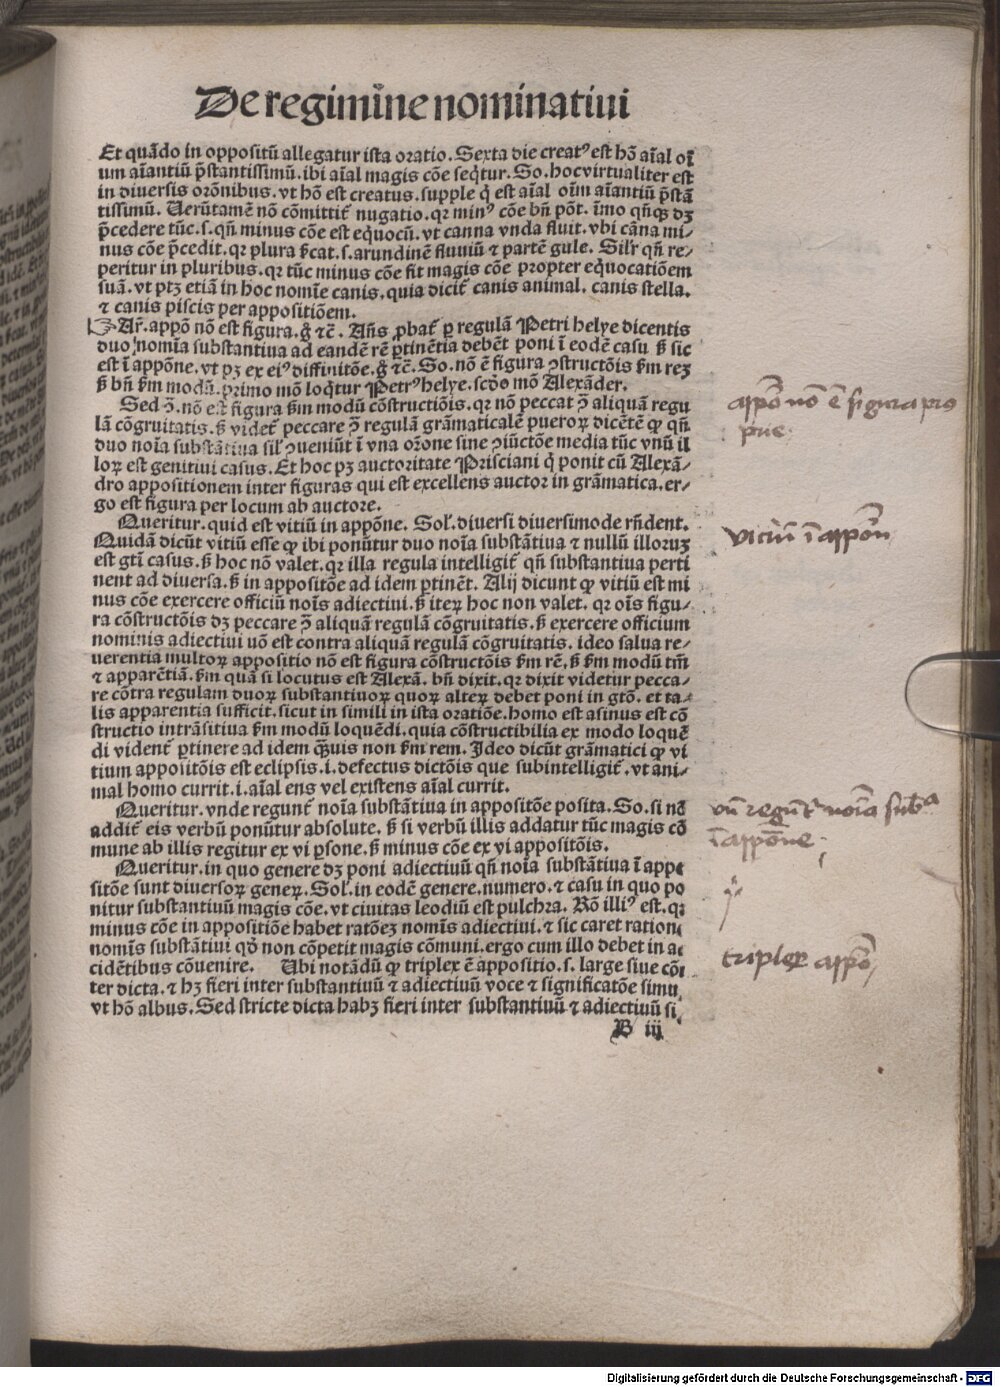 De regimine nominatiui
Et quãdo in oppositũ allegatur ista oratio. Sexta die creatꝰ est hõ aĩal oĩ
um aĩantiũ p̃stantissimũ. ibi aĩal magis cõe seq̃tur. So. hoc virtualiter est
in diuersis orõnibus. vt hõ est creatus. supple q̃ est aĩal oĩm aĩantiũ p̃stã
tissimũ. Uerũtamẽ nõ cõmittit̃ nugatio. qꝛ minꝰ cõe bñ põt. ĩmo qñqꝫ dꝫ
p̃cedere tũc. s. qñ minus cõe est equocũ. vt canna vnda fluit. vbi cãna mi⸗
nus cõe p̃cedit. qꝛ plura s̃cat. s. arundinẽ fluuiũ ⁊ partẽ gule. Silr̃ qñ re⸗
peritur in pluribus. qꝛ tũc minus cõe fit magis cõe propter eq̃uocatiõem
suã. vt ptꝫ etiã in hoc nomĩe canis. quia dicit̃ canis animal. canis stella.
⁊ canis piscis per appositiõem.
☞ Ar̃. appõ nõ est figura. g̃ ⁊c̃. Añs ꝓbat̃ ꝑ regulã Petri helye dicentis
duo nomĩa substantiua ad eandẽ rẽ ꝑtinẽtia debẽt poni ĩ eodẽ casu s̃ sic
est ĩ appõne. vt pꝫ ex eiꝰ diffinitõe. g̃ ⁊c̃. So. nõ ẽ figura ꝯstructõis s̃m reꝫ
s̃ bñ s̃m modũ. primo mõ loq̃tur Petrꝰ helye. scḋo mõ Alexãder.
Sed ꝯ̃. nõ est figura s̃m modũ cõstructiõis. qꝛ nõ peccat ꝯ̃ aliquã regu
lã cõgruitatis. s̃ videt̃ peccare ꝯ̃ regulã grãmaticalẽ pueroꝝ dicẽtẽ ꝙ qñ
duo noĩa substãtiua sil̃ ꝯueniũt ĩ vna orõne sine ꝯiũctõe media tũc vnũ il
loꝝ est genitiui casus. Et hoc pꝫ auctoritate Prisciani q̃ ponit cũ Alexã⸗
dro appositionem inter figuras qui est excellens auctor in grãmatica. er⸗
go est figura per locum ab auctore.
Queritur. quid est vitiũ in appõne. Sol̃. diuersi diuersimode rñdent.
Quidã dicũt vitiũ esse ꝙ ibi ponũtur duo noĩa substãtiua ⁊ nullũ illoruꝫ
est gtĩ casus. s̃ hoc nõ valet. qꝛ illa regula intelligit̃ qñ substantiua perti
nent ad diuersa. s̃ in appositõe ad idem ꝑtinẽt. Alij dicunt ꝙ vitiũ est mi
nus cõe exercere officiũ noĩs adiectiui. s̃ iteꝝ hoc non valet. qꝛ oĩs figu⸗
ra cõstructõis dꝫ peccare ꝯ̃ aliquã regulã cõgruitatis. s̃ exercere officium
nominis adiectiui nõ est contra aliquã regulã cõgruitatis. ideo salua re⸗
uerentia multoꝝ appositio nõ est figura cõstructõis s̃m rẽ. s̃ s̃m modũ tm̃
⁊ apparẽtiã. s̃m quã si locutus est Alexã. bñ dixit. qꝛ dixit videtur pecca⸗
re cõtra regulam duoꝝ substantiuoꝝ quoꝝ alteꝝ debet poni in gtõ. et ta⸗
lis apparentia sufficit. sicut in simili in ista oratiõe. homo est asinus est cõ
structio intrãsitiua s̃m modũ loquẽdi. quia cõstructibilia ex modo loquẽ
di videnť ꝑtinere ad idem q̃uis non s̃m rem. Ideo dicũt grãmatici ꝙ vi
tium appositõis est eclipsis. i. defectus dictõis que subintelligit̃. vt ani⸗
mal homo currit. i. aĩal ens vel existens aĩal currit.
Queritur. vnde regunt̃ noĩa substãtiua in appositõe posita. So. si nõ
addit̃ eis verbũ ponũtur absolute. s̃ si verbũ illis addatur tũc magis cõ
mune ab illis regitur ex vi ꝑsone. s̃ minus cõe ex vi appositõis.
Queritur. in quo genere dꝫ poni adiectiuũ qñ noĩa substãtiua ĩ appo
sitõe sunt diuersoꝝ geneꝝ. Sol̃. in eodẽ genere. numero. ⁊ casu in quo po
nitur substantiuũ magis cõe. vt ciuitas leodiũ est pulchra. Rõ illiꝰ est. qꝛ
minus cõe in appositiõe habet ratõeꝫ nomĩs adiectiui. ⁊ sic caret ration
nomĩs substãtiui qḋ non cõpetit magis cõmuni. ergo cum illo debet in ac
cidẽtibus cõuenire. Ubi notãdũ ꝙ triplex ẽ appositio. s. large siue cõi
ter dicta. ⁊ hꝫ fieri inter substantiuũ ⁊ adiectiuũ voce ⁊ significatõe simu
vt hõ albus. Sed stricte dicta habꝫ fieri inter substantiuũ ⁊ adiectiuũ si
B iij
appõ nõ ẽ figura pro
prie
viciũ ĩ appõn
vñ regũt̃ noĩa subᵃ
ĩ appõne
triplex appõ
Digitalisierung gefördert durch die Deutsche Forschungsgemeinschaft - DFG